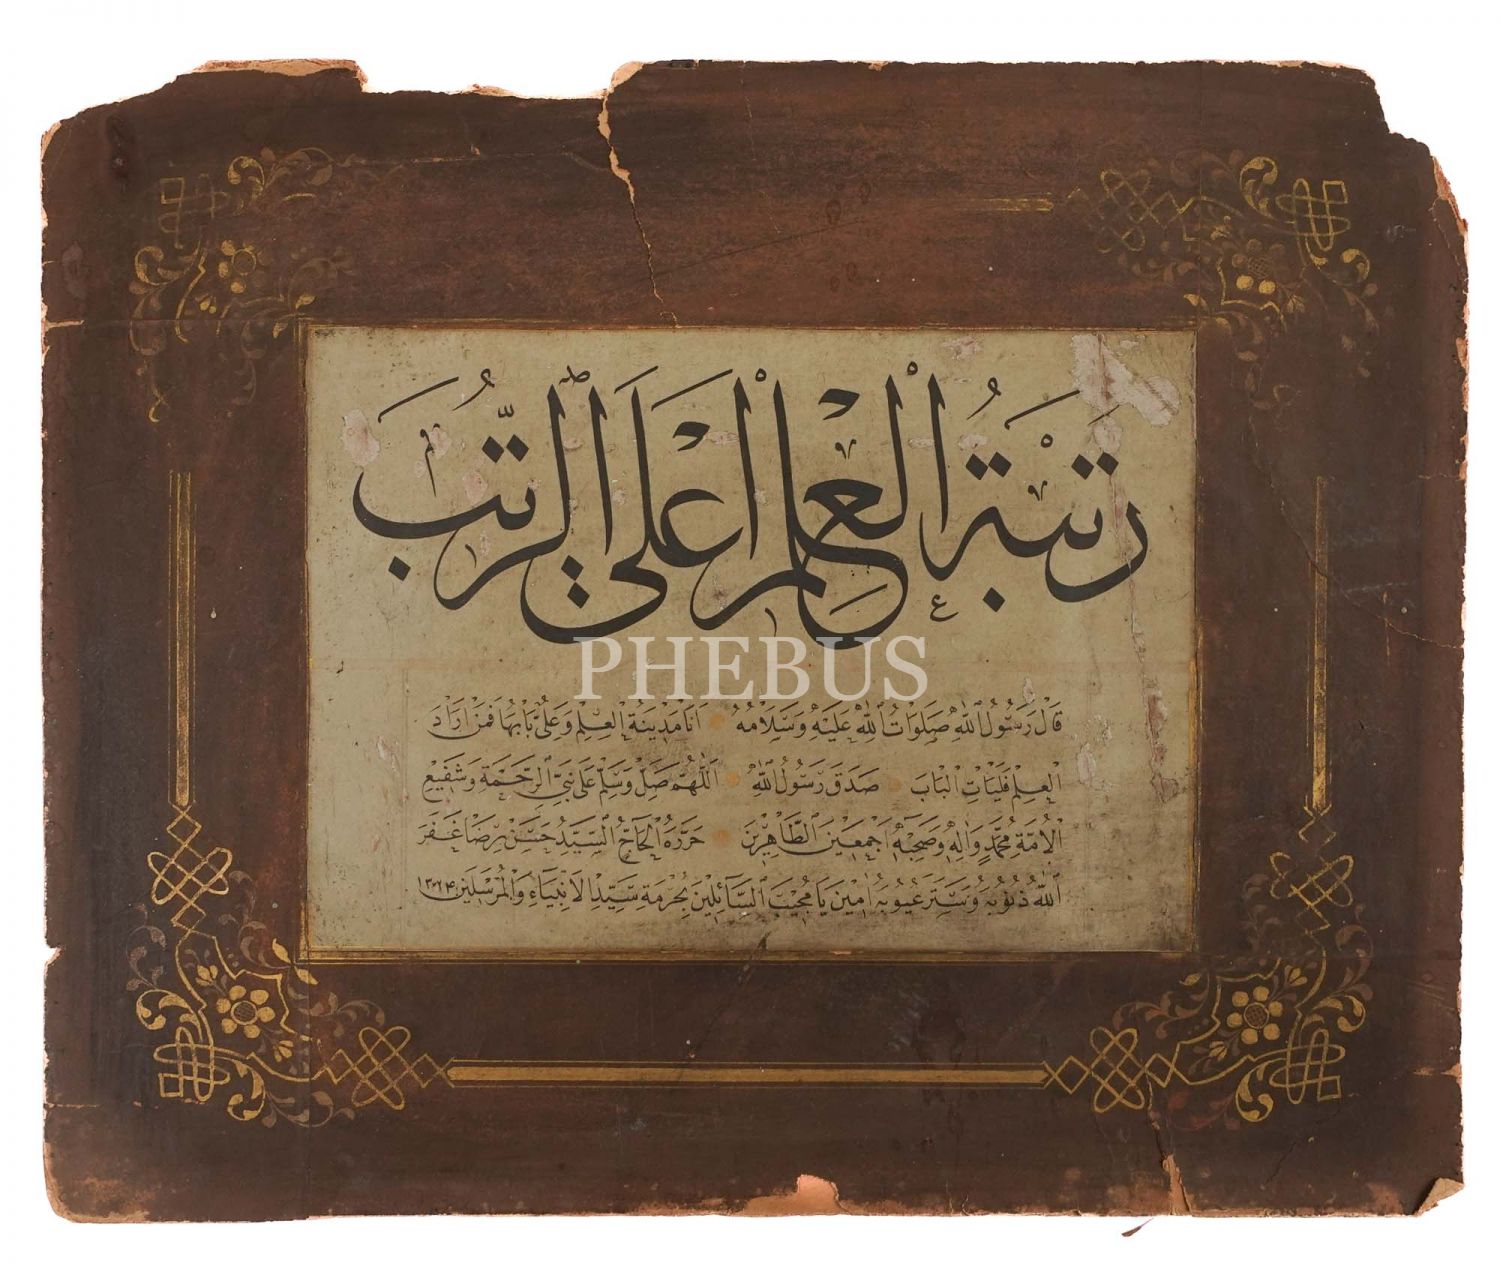 رُتْبَةُ الْعِلْمِ اَعْلَى الرُّتَبِ
PHEBUS
قَالَ رَسُولُ اللّٰهِ صَلَوَاتُ اللّٰهِ عَلَيْهِ وَسَلَامُهُ اَنَا مَدِينَةُ الْعِلْمِ وَعَلِىٌّ بَابُهَا فَمَنْ اَرَادَ
الْعِلْمَ فَلْيَاْتِ الْبَابَ صَدَقَ رَسُولُ اللّٰهِ اَللّٰهُمَّ صَلِّ وَسَلِّمْ عَلَى نَبِىِّ الرَّحْمَةِ وَشَفِيعِ
الْاُمَّةِ مُحَمَّدٍ وَاٰلِهِ وَصَحْبِهِ اَجْمَعِينَ الطَّاهِرِينَ حَرَّرَهُ الْحَاجُّ السَّيِّدُ حَسَنْ رِضَا غَفَرَ
اللّٰهُ ذُنُوبَهُ وَسَتَرَ عُيُوبَهُ اٰمِينَ يَا مُجِيبَ السَّآئِلِينَ بِحُرْمَةِ سَيِّدِ الْاَنْبِيَاءِ وَالْمُرْسَلِينَ